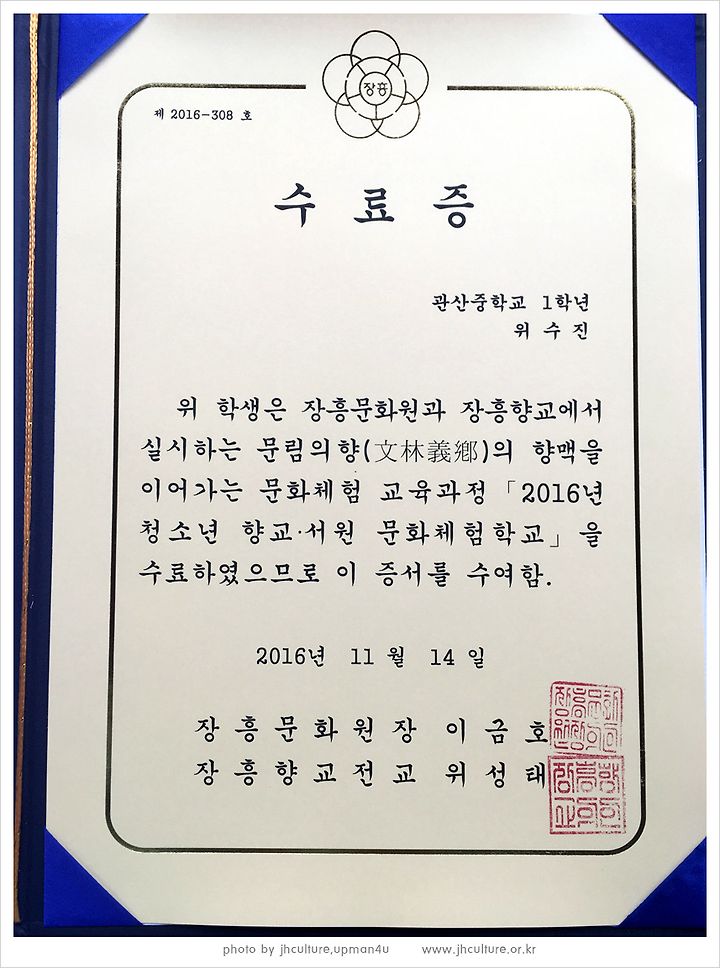 장흥
제 2016-308 호
수 료 증
관산중학교 1학년
위 수 진
위 학생은 장흥문화원과 장흥향교에서
실시하는 문림의향(文林義鄕)의 향맥을
이어가는 문화체험 교육과정 「2016년
청소년 향교·서원 문화체험학교」을
수료하였으므로 이 증서를 수여함.
2016년 11 월 14 일
장 흥 문 화 원 장 이 금 호
장 흥 향 교 전 교 위 성 태
photo by jhculture,upman4u www.jhculture.or.kr